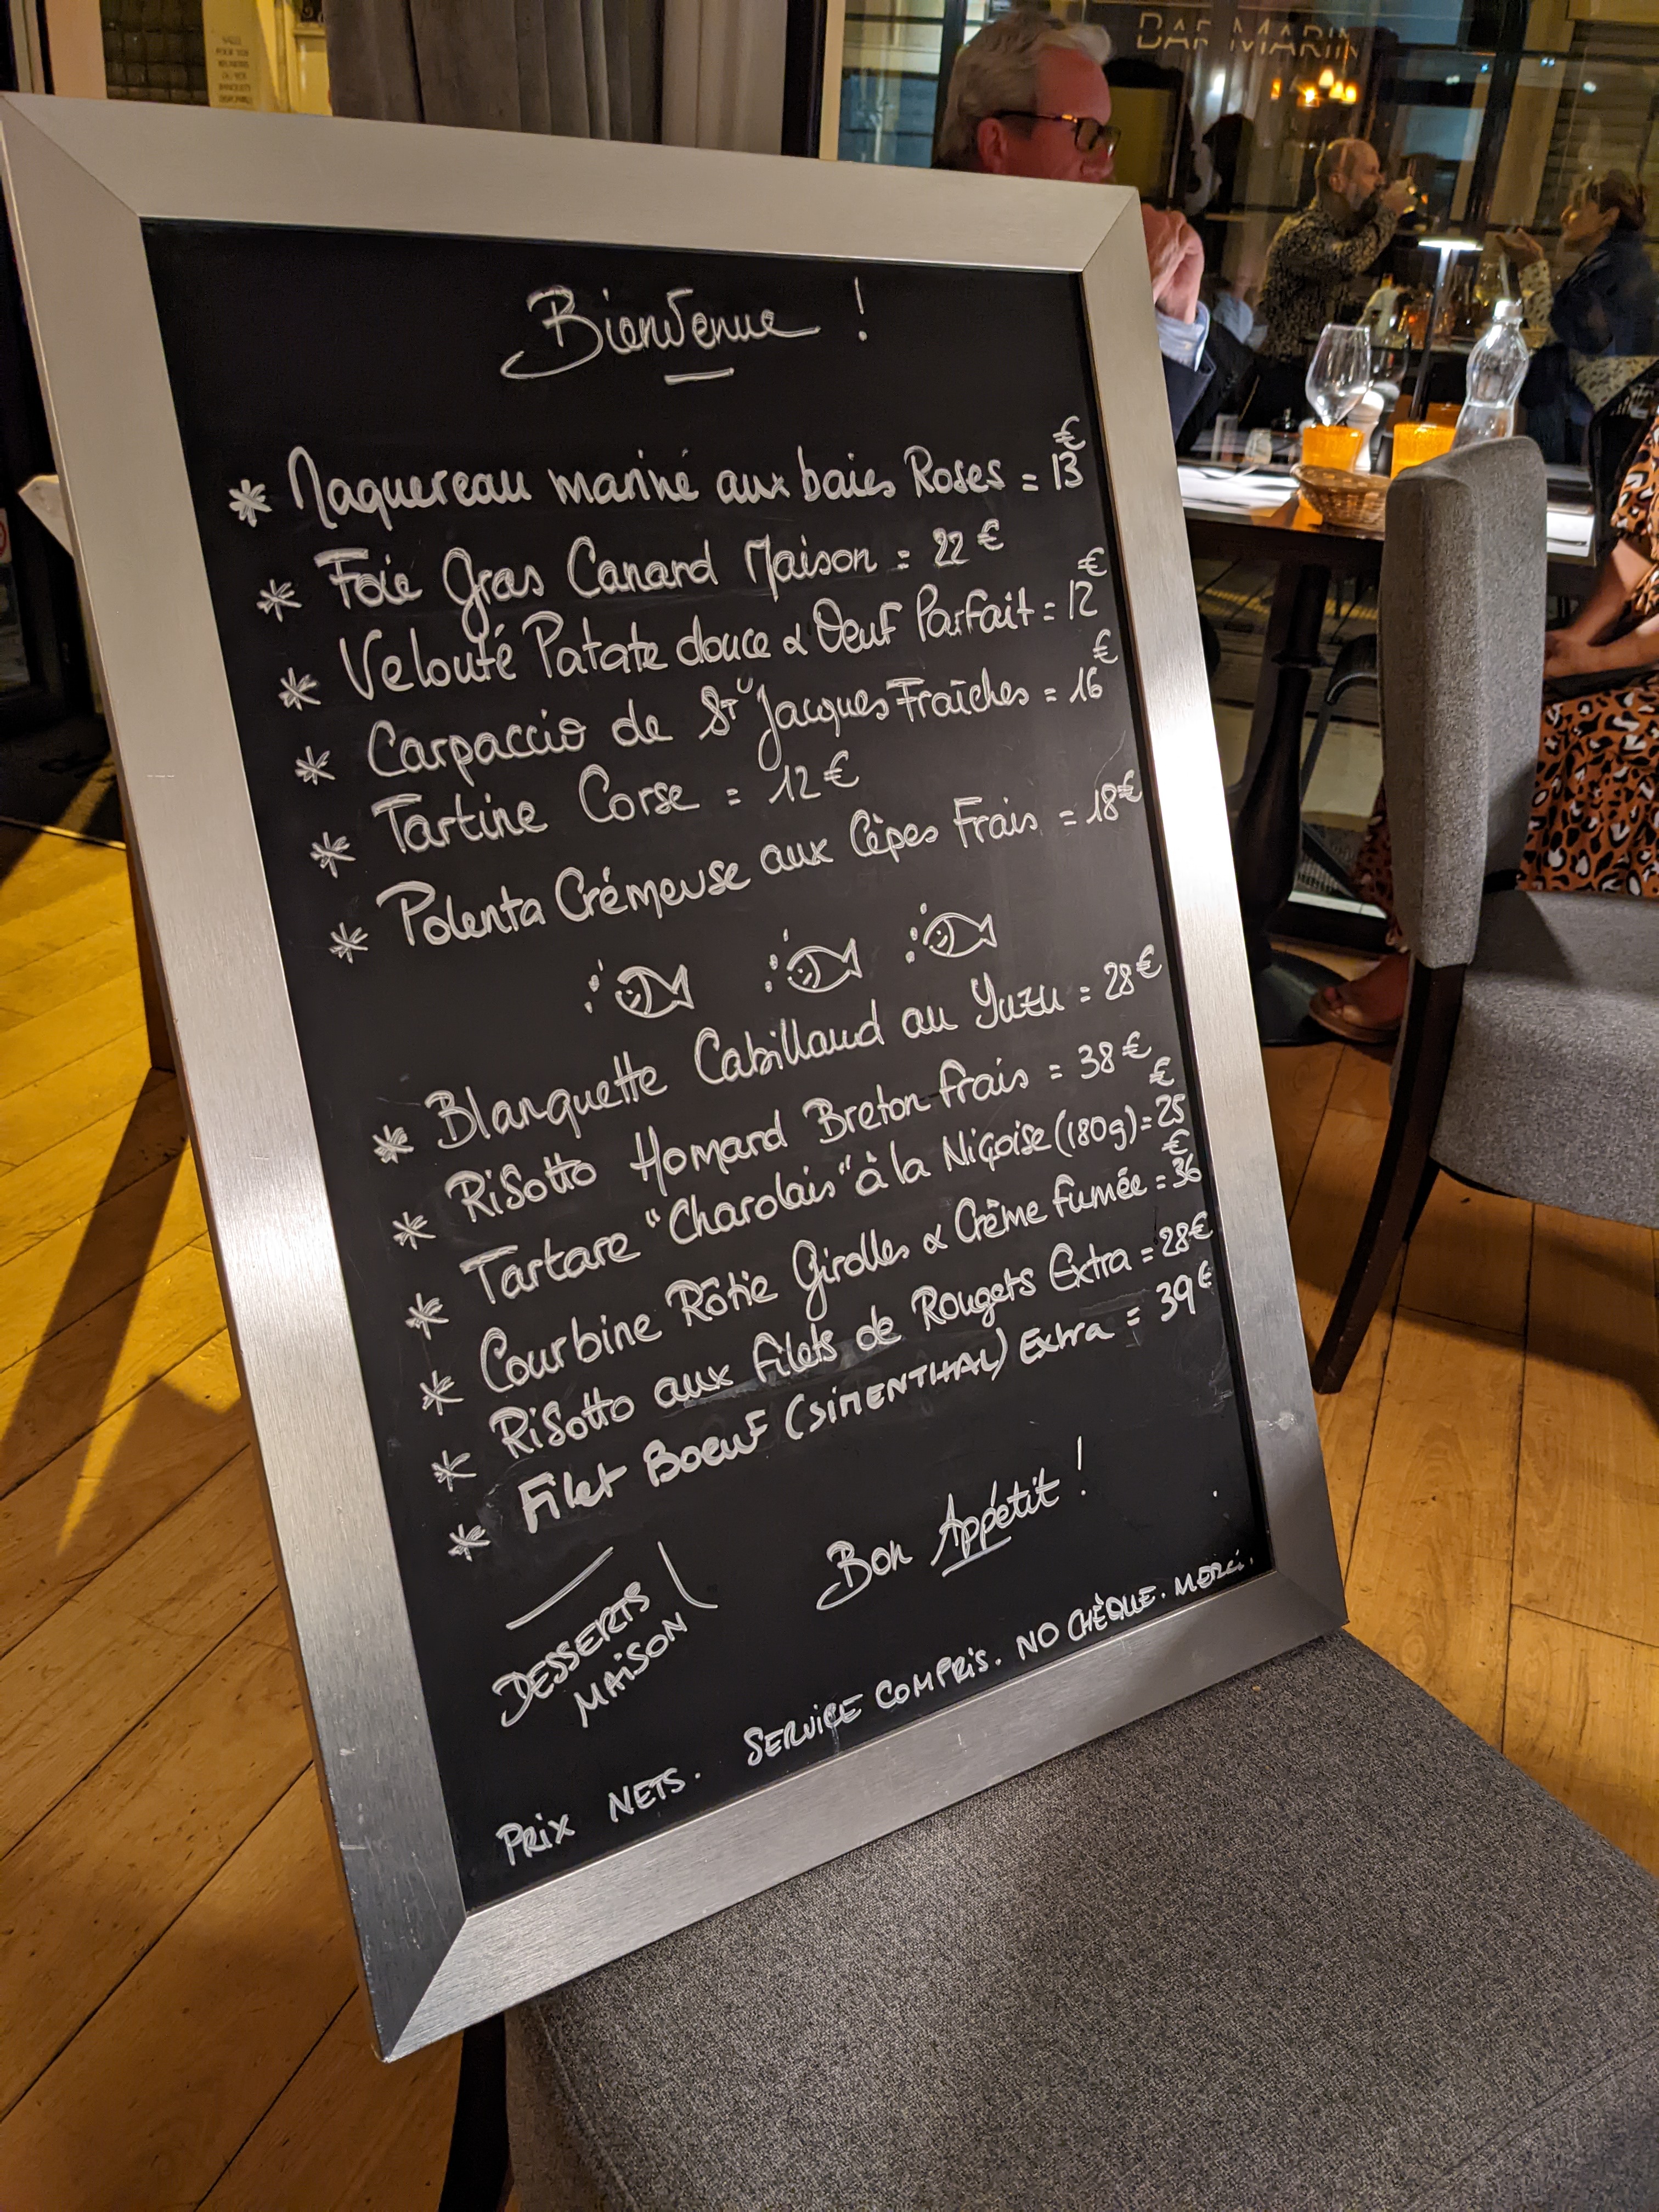 BAR MARIN
Bienvenue !
* Maquereau mariné aux baies Roses = 13€
* Foie Gras Canard Maison = 22€
* Velouté Patate douce & Oeuf Parfait = 12€
* Carpaccio de St Jacques Fraîches = 16€
* Tartine Corse = 12€
* Polenta Crémeuse aux Cèpes Frais = 18€
* Blanquette Cabillaud au Yuzu = 28€
* Risotto Homard Breton frais = 38€
* Tartare "Charolais" à la Niçoise (180g) = 25€
* Courbine Rôtie Girolles & Crème fumée = 36€
* Risotto aux filets de Rougets Extra = 28€
* Filet Boeuf (SIMENTHAL) Extra = 39€
DESSERTS
MAISON
Bon Appétit !
PRIX NETS. SERVICE COMPRIS. NO CHÈQUE. MERCI.